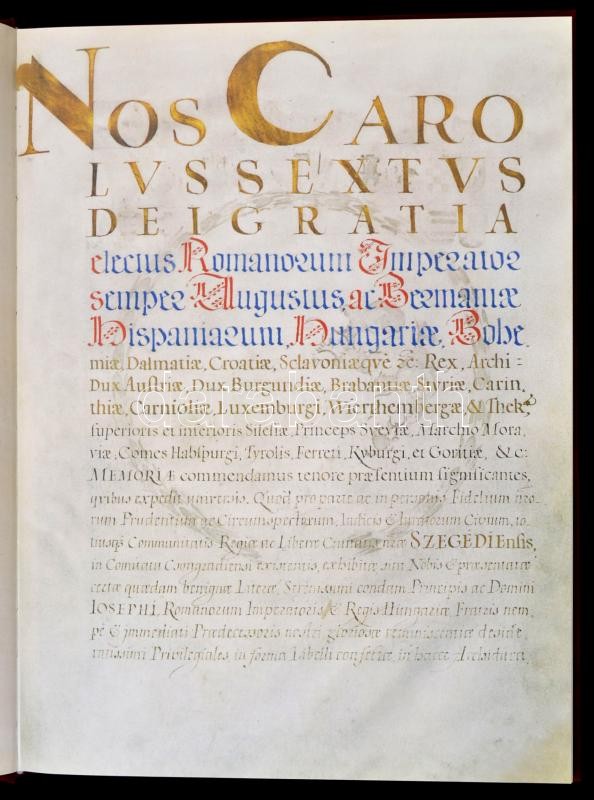 NOS CARO
LVS SEXTVS
DEI GRATIA
electus Romanorum Imperator
semper Augustus, ac Germaniæ
Hispaniarum, Hungariæ, Bohe
miæ, Dalmatiæ, Croatiæ, Sclavoniæqve &c: Rex, Archi=
Dux Austriæ, Dux Burgundiæ, Brabantiæ, Styriæ, Carin
thiæ, Carnioliæ, Luxemburgi, Wierthembergæ, & Thek,
superioris et inferioris Silesiæ, Princeps Sveviæ, Marchio Mora
viæ, Comes Habspurgi, Tyrolis, Ferreti, Kyburgi, et Goritiæ, & c:
MEMORIÆ commendamus tenore præsentium significantes,
qvibus expedit universis. Quod pro parte ac in personis Fidelium nro
rum Prudentum ac Circumspectorum, Judicis & Juratorum Civium, to
tiusq3 Communitatis Regiæ ac Liberæ Civitatis nræ SZEGEDIEnsis,
in Comitatu Csongradiensi existentis, exhibitæ sunt Nobis & præsentatæ
certæ quædam benignæ Literæ, Serenissimi condam Principis ac Domini
IOSEPHI, Romanorum Imperatoris & Regis Hungariæ, Fratris nem
pe & immediati Prædecessoris nostri gloriosæ reminiscentiæ deside
ratissimi Privilegiales, in forma Libelli confectæ, in
darabanth